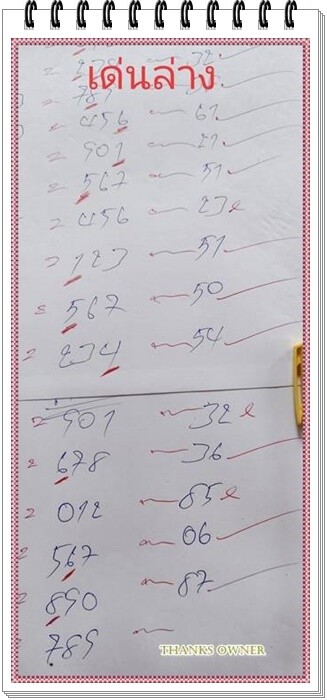 เด่นล่าง
789
456 61
901 21
567 51
456 23
123 51
567 50
234 54
901 32
678 36
012 85
567 06
890 87
789
THANKS OWNER